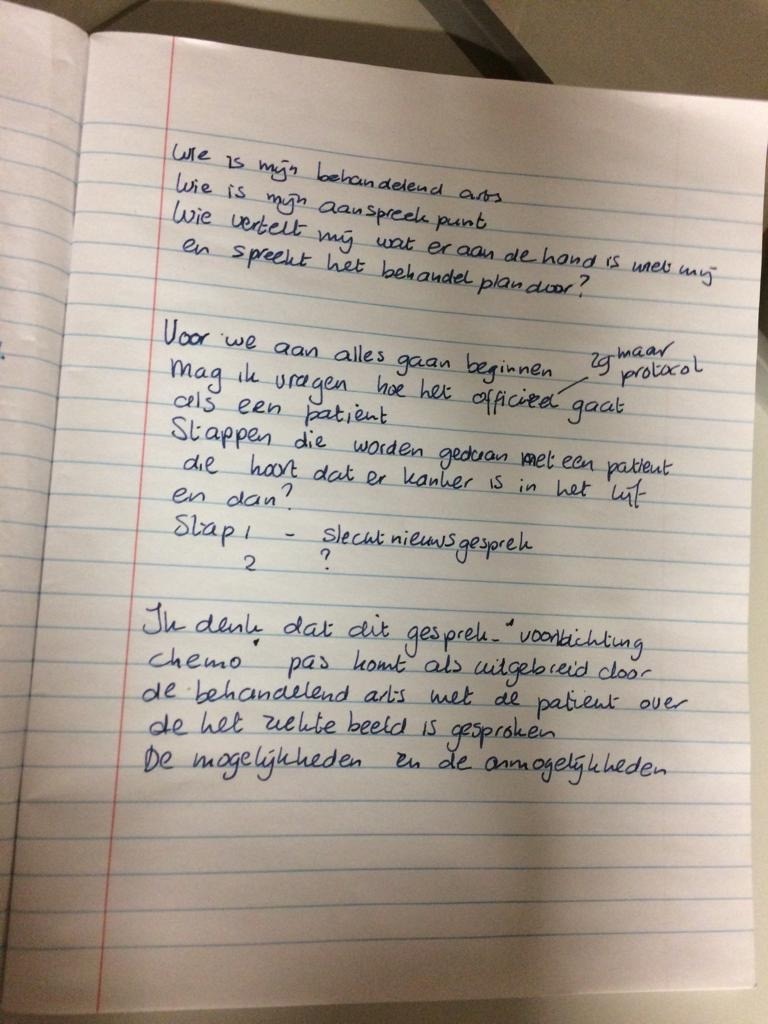 Wie is mijn behandelend arts
Wie is mijn aanspreek punt
Wie vertelt mij wat er aan de hand is met mij
en spreekt het behandel plan door?
Voor we aan alles gaan beginnen
zg maar
protocol
Mag ik vragen hoe het officieel gaat
als een patient
Stappen die worden gedaan met een patient
die hoort dat er kanker is in het lijf
en dan?
Stap 1 - slecht nieuwsgesprek
2 ?
Ik denk dat dit gesprek - "voorlichting
chemo" pas komt als uitgebreid door
de behandelend arts met de patient over
de het ziekte beeld is gesproken
De mogelijkheden en de onmogelijkheden